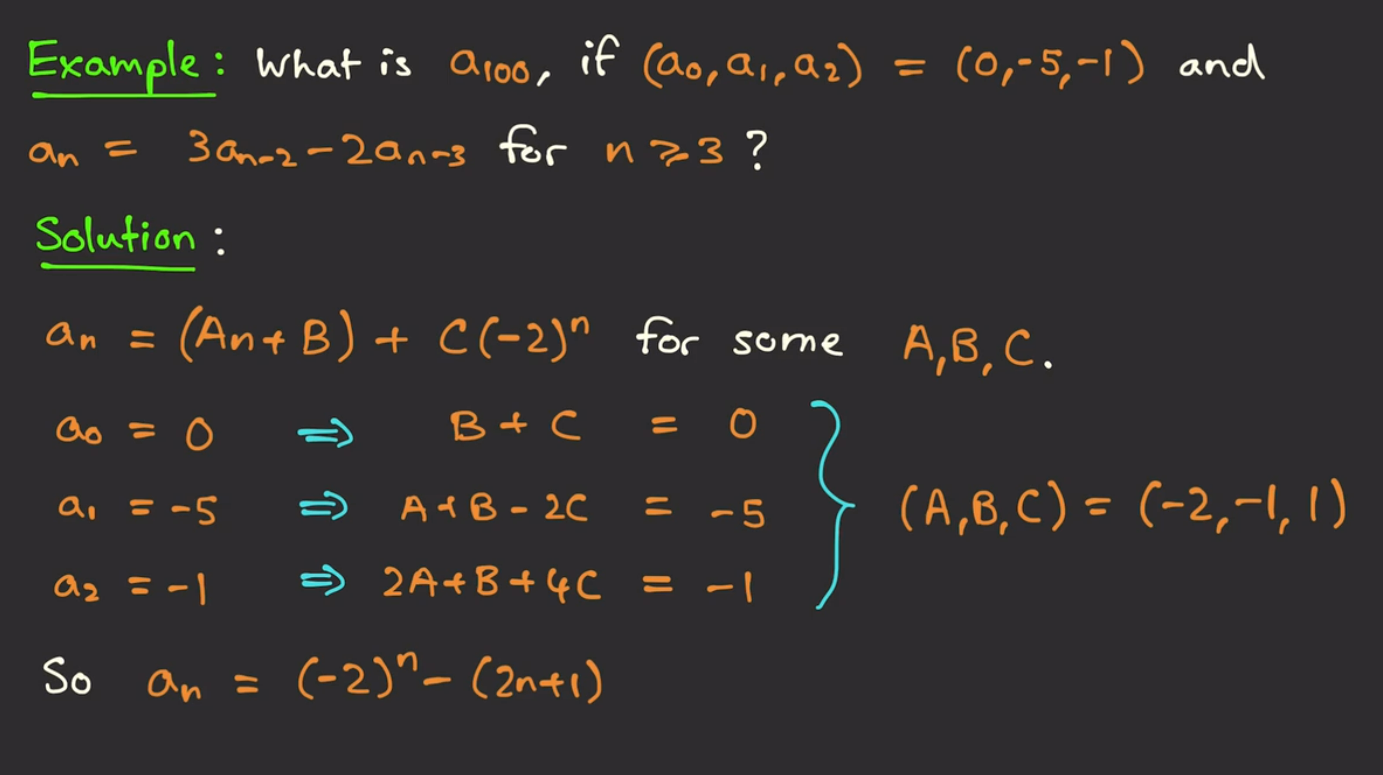 Example: What is a₁₀₀, if (a₀, a₁, a₂) = (0,-5,-1) and
aₙ = 3aₙ₋₂ - 2aₙ₋₃ for n ⩾ 3 ?
Solution :
aₙ = (An + B) + C(-2)ⁿ for some A, B, C.
a₀ = 0 ⇒ B + C = 0
a₁ = -5 ⇒ A + B - 2C = -5
a₂ = -1 ⇒ 2A + B + 4C = -1
(A, B, C) = (-2, -1, 1)
So aₙ = (-2)ⁿ - (2n+1)